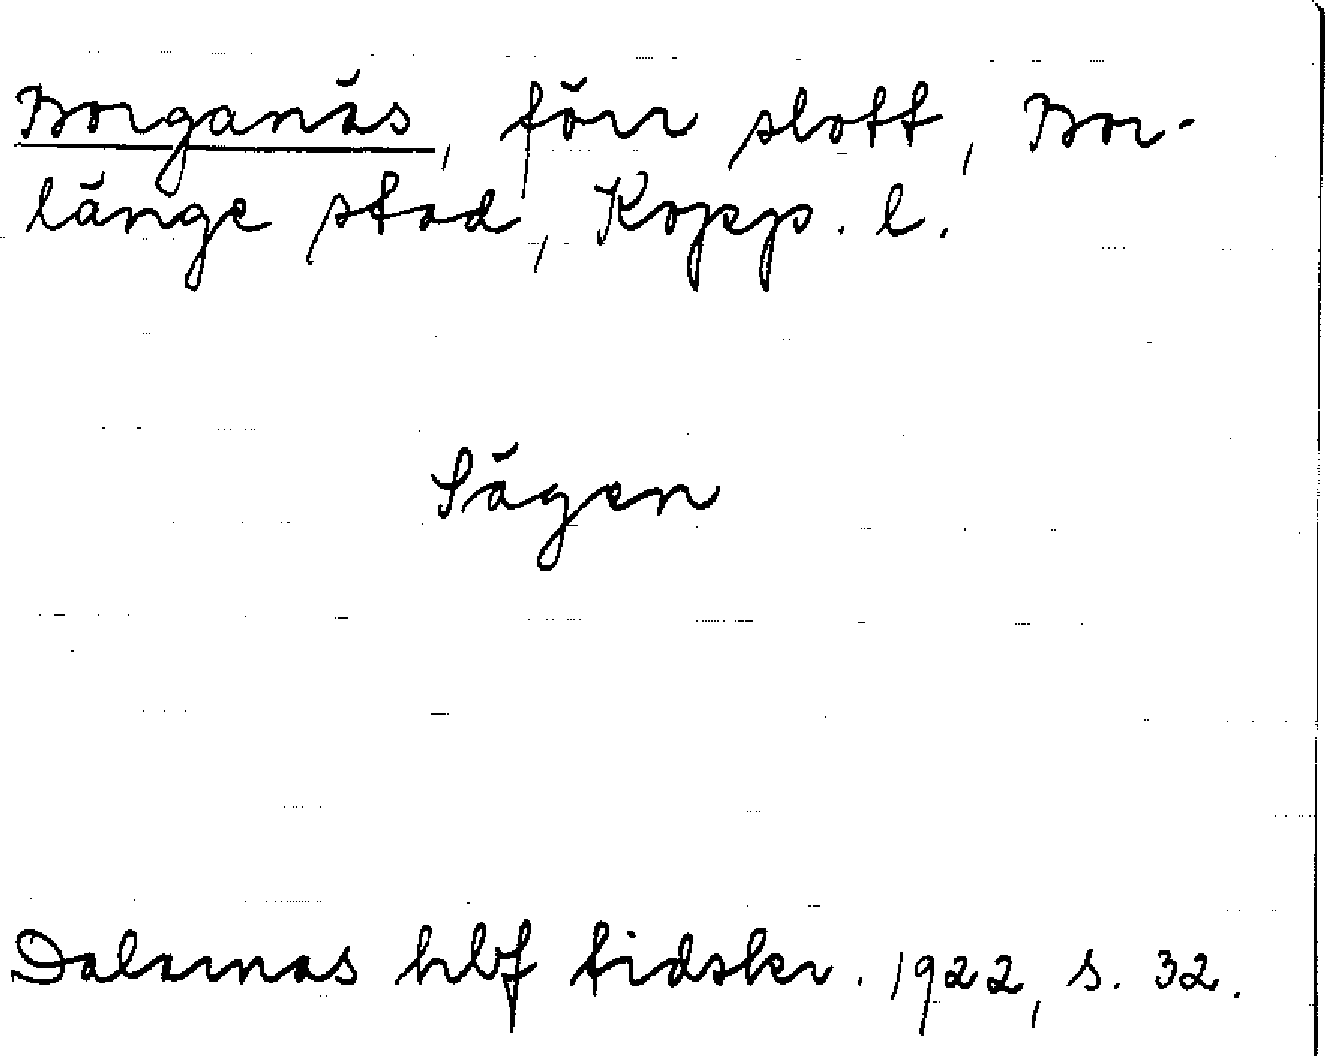 Borganäs, förr slott, Bor-
länge stad, Kopp. l.
Sägen
Dalarnas hbf tidskr. 1922, s. 32.